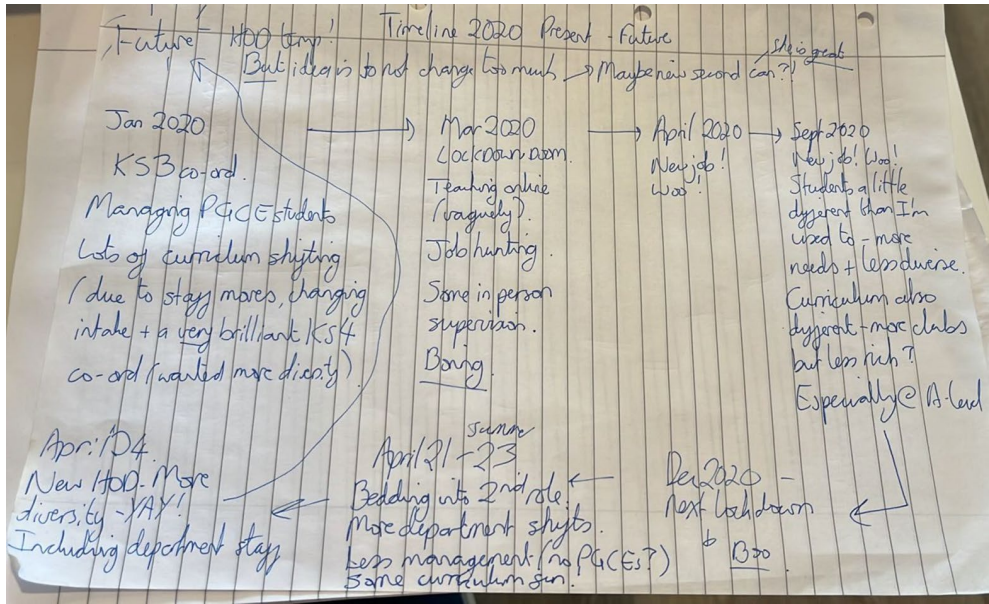 Timeline 2020 Present - Future
Future HOD temp!
She is great
But idea is to not change too much → Maybe new second can?!
Jan 2020
KS3 co-ord.
Managing PGCE students
Lots of curriculum shifting
(due to staff moves, changing
intake + a very brilliant KS4
co-ord (wanted more
Mar 2020
Lockdown Doom.
Teaching online
(vaguely).
Job hunting.
Some in person
supervision.
Boring.
April 2020
New job!
Woo!
Sept 2020
New job! Woo!
Students a little
different than I'm
used to - more
needs + less diverse.
Curriculum also
different - more clubs
but less rich?
Especially @ A-level
Dec 2020 -
next lockdown
Boo.
Summer
April 21 - 23
Bedding into 2nd role.
More department shifts.
Less management (no PGCEs?)
Some curriculum fun.
April
New HOD. More
diversity - YAY!
Including department staff